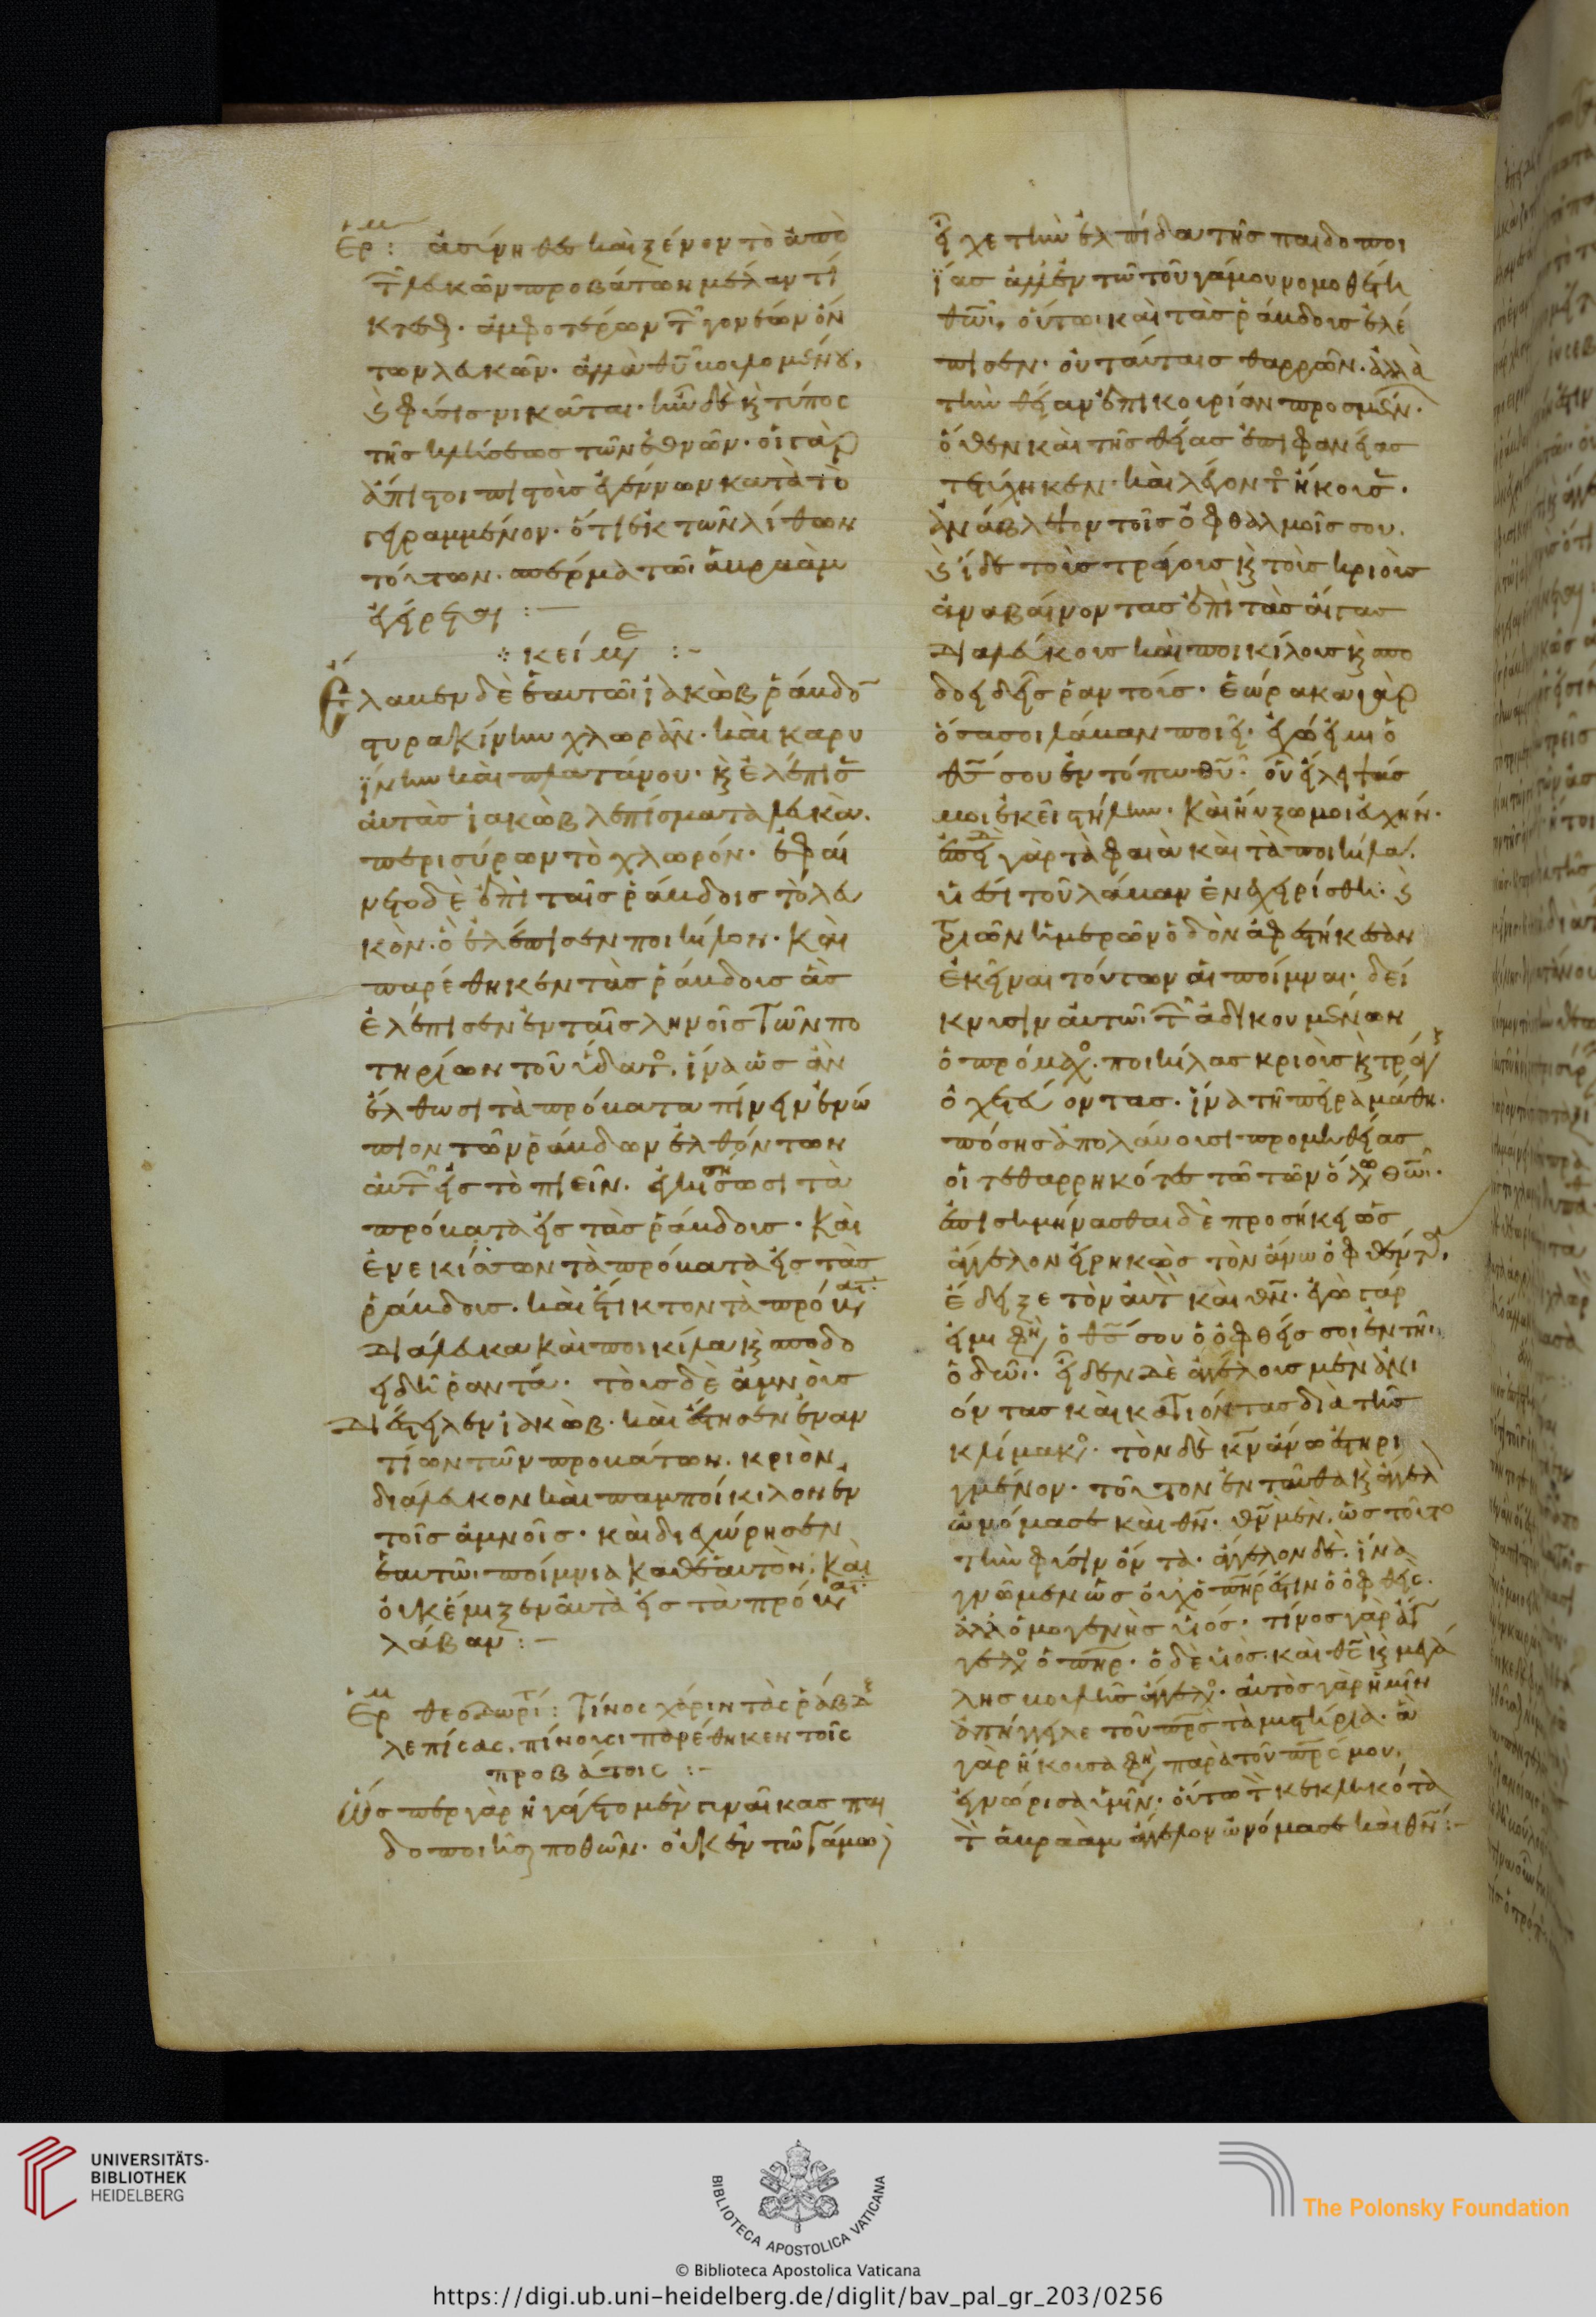 Ερμ: ἀσύνηθες καὶ ξένον τὸ ἀπὸ
τῶν λευκῶν προβάτων μέλαν τί
κτεσθαι· ἀμφοτέρων τῶν γονέων ὄν
των λευκῶν· ἀλλὰ θῦ βουλομένου,
καὶ φύσις νικᾶται· ἦν δὲ καὶ τύπος
τῆς κλίσεως τῶν ἐθνῶν· οἱ γὰρ
ἄπιστοι πιστοὺς ἐγέννων κατὰ τὸ
γεγραμμένον· ὅτι ἐκ τῶν λίθων
τούτων· σπέρμα τῶι ἀβραὰμ
ἐγείρεται :—
κείμε :—
Ἔλαβεν δὲ ἑαυτῶι ἰακὼβ ῥάβδον
στυρακίνην χλωρὰν· καὶ καρυ
ΐνην καὶ πλατάνου· καὶ ἐλέπισεν
αὐτὰς ἰακὼβ λεπίσματα λευκὰ.
περισύρων τὸ χλωρόν· ἐφαί
νετο δὲ ἐπὶ ταῖς ῥάβδοις τὸ λευ
κὸν· ὃ ἐλέπισεν ποικίλον· Καὶ
παρέθηκεν τὰς ῥάβδους ἃς
ἐλέπισεν ἐν ταῖς ληνοῖς τῶν πο
τηρίων τοῦ ὕδατος, ἵνα ὡς ἂν
ἔλθωσι τὰ πρόβατα πίνειν ἐνώ
πιον τῶν ῥάβδων ἐλθόντων
αὐτῶν εἰς τὸ πιεῖν. ἐγκισσήσωσι τὰ
πρόβατα εἰς τὰς ῥάβδους· Καὶ
ἐνεκίσσων τὰ πρόβατα εἰς τὰς
ῥάβδους. καὶ ἔτικτον τὰ πρόβατα
διάλευκα καὶ ποικίλα καὶ σποδο
ειδῆ ῥαντά· τοὺς δὲ ἀμνοὺς
διέστειλεν ἰακὼβ· καὶ ἔστησεν ἐναν
τίων τῶν προβάτων. κριὸν
διάλευκον καὶ παμποίκιλον ἐν
τοῖς ἀμνοῖς· καὶ διεχώρησεν
ἑαυτῶι ποίμνια καθ' ἑαυτὸν. Καὶ
οὐκ ἔμιξεν αὐτὰ εἰς τὰ πρόβατα
λάβαν :—
Ερμ θεοδωρίτ: Τίνος χάριν τὰς ῥάβδους
λεπίσας, πίνουσι παρέθηκεν τοῖς
προβάτοις :—
Ὥσπερ γὰρ ἠγάγετο μὲν γυναῖκας παι
δοποιῆσαι ποθῶν· οὐκ ἐν τῶ γάμωι
εἶχε τὴν ἐλπίδα τῆς παιδοποι
ΐας ἀλλ' ἐν τῶ τοῦ γάμου νομοθέτη
θῶι, οὕτω καὶ τὰς ῥάβδους ἐλέ
πισεν· οὐ ταύταις θαρρῶν· ἀλλὰ
τὴν θείαν ἐπικουρίαν προσμένων·
ὅθεν καὶ τῆς θείας ἐπιφανείας
τετύχηκεν· καὶ λέγοντος ἤκουσεν·
ἀνάβλεψον τοῖς ὀφθαλμοῖς σου.
καὶ ἴδε τοὺς τράγους καὶ τοὺς κριοὺς
ἀναβαίνοντας ἐπὶ τὰς αἶγας
διαλεύκους καὶ ποικίλους καὶ σπο
δοειδεῖς ῥαντούς· ἑώρακα γὰρ
ὅσα σοι λάβαν ποιεῖ· ἐγώ εἰμι ὁ
θς σου ἐν τόπω θῦ· οὗ ἤλειψάς
μοι ἐκεῖ στήλην. Καὶ ηὔξω μοι εὐχήν.
ἐπειδὴ γὰρ τὰ φαιὰ καὶ τὰ ποικίλα.
υἱοὶ τοῦ λάβαν ἐνεχειρίσθη. καὶ
τριῶν ἡμερῶν ὁδὸν ἀφεστήκεσαν
ἐκεῖναι τούτων αἱ ποίμναι. δεί
κνυσιν αὐτῶι τῶν ἀδικουμένων
ὁ πρόμαχος. ποικίλας κριοὺς καὶ τράγους
ὀχεύοντας. ἵνα τῆ πείρα μάθη.
πόσης ἀπολαύουσι προμηθείας
οἱ τεθαρρηκότες τῶ τῶν ὅλων θῶι.
ἐπισημήνασθαι δὲ προσήκει ὡς
ἄγγελον εἰρηκὼς τὸν ἄνω ὀφθέντα,
ἔδειξε τὸν αὐτὸν καὶ θν. ἐγὼ γάρ
εἰμι φησὶν ὁ θς σου ὁ ὀφθείς σοι ἐν τῆι
ὁδῶι. εἶδεν δὲ ἀγγέλους μὲν ἀνι
όντας καὶ κατιόντας διὰ τῆς
κλίμακος. τὸν δὲ κν ἄνω ἐστηρι
γμένον. τοῦτον ἐνταῦθα καὶ ἄγγελον
ὠνόμασε καὶ θν. θν μὲν, ὡς τοῦτο
τὴν φύσιν ὄντα. ἄγγελον δὲ. ἵνα
γνῶμεν ὡς οὐχ ὁ πηρ ἐστιν ὁ ὀφθείς.
ἀλλ' ὁ μονογενὴς υἱός. τίνος γὰρ ἄγ
γελος ὁ πηρ. ὁ δὲ υἱὸς. καὶ θς καὶ μεγά
λης βουλῆς ἄγγελος. αὐτὸς γὰρ ἡμῖν
ἀπήγγειλε τοῦ πρς τὰ μυστήρια. ἃ
γὰρ ἤκουσα φησὶ παρὰ τοῦ πρς μου,
ἐγνώρισα ὑμῖν. οὕτω τὸν κεκληκότα
τὸν ἀβραὰμ ἄγγελον ὠνόμασε καὶ θν :—
UNIVERSITÄTS-
BIBLIOTHEK
HEIDELBERG
BIBLIOTECA APOSTOLICA VATICANA
The Polonsky Foundation
© Biblioteca Apostolica Vaticana
https://digi.ub.uni-heidelberg.de/diglit/bav_pal_gr_203/0256